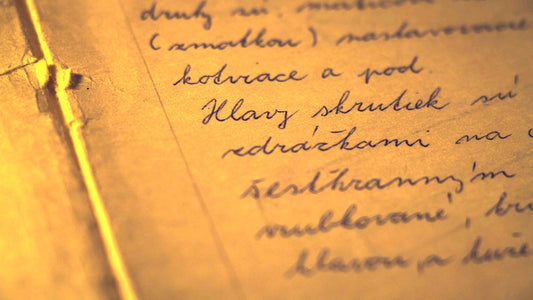 druhy sú: maticou
(zmatkou) nastavovacie
kotviace a pod.
Hlavy skrutiek sú
zdrážkami na
šesťhranným
vrubkované,
hlavou, a